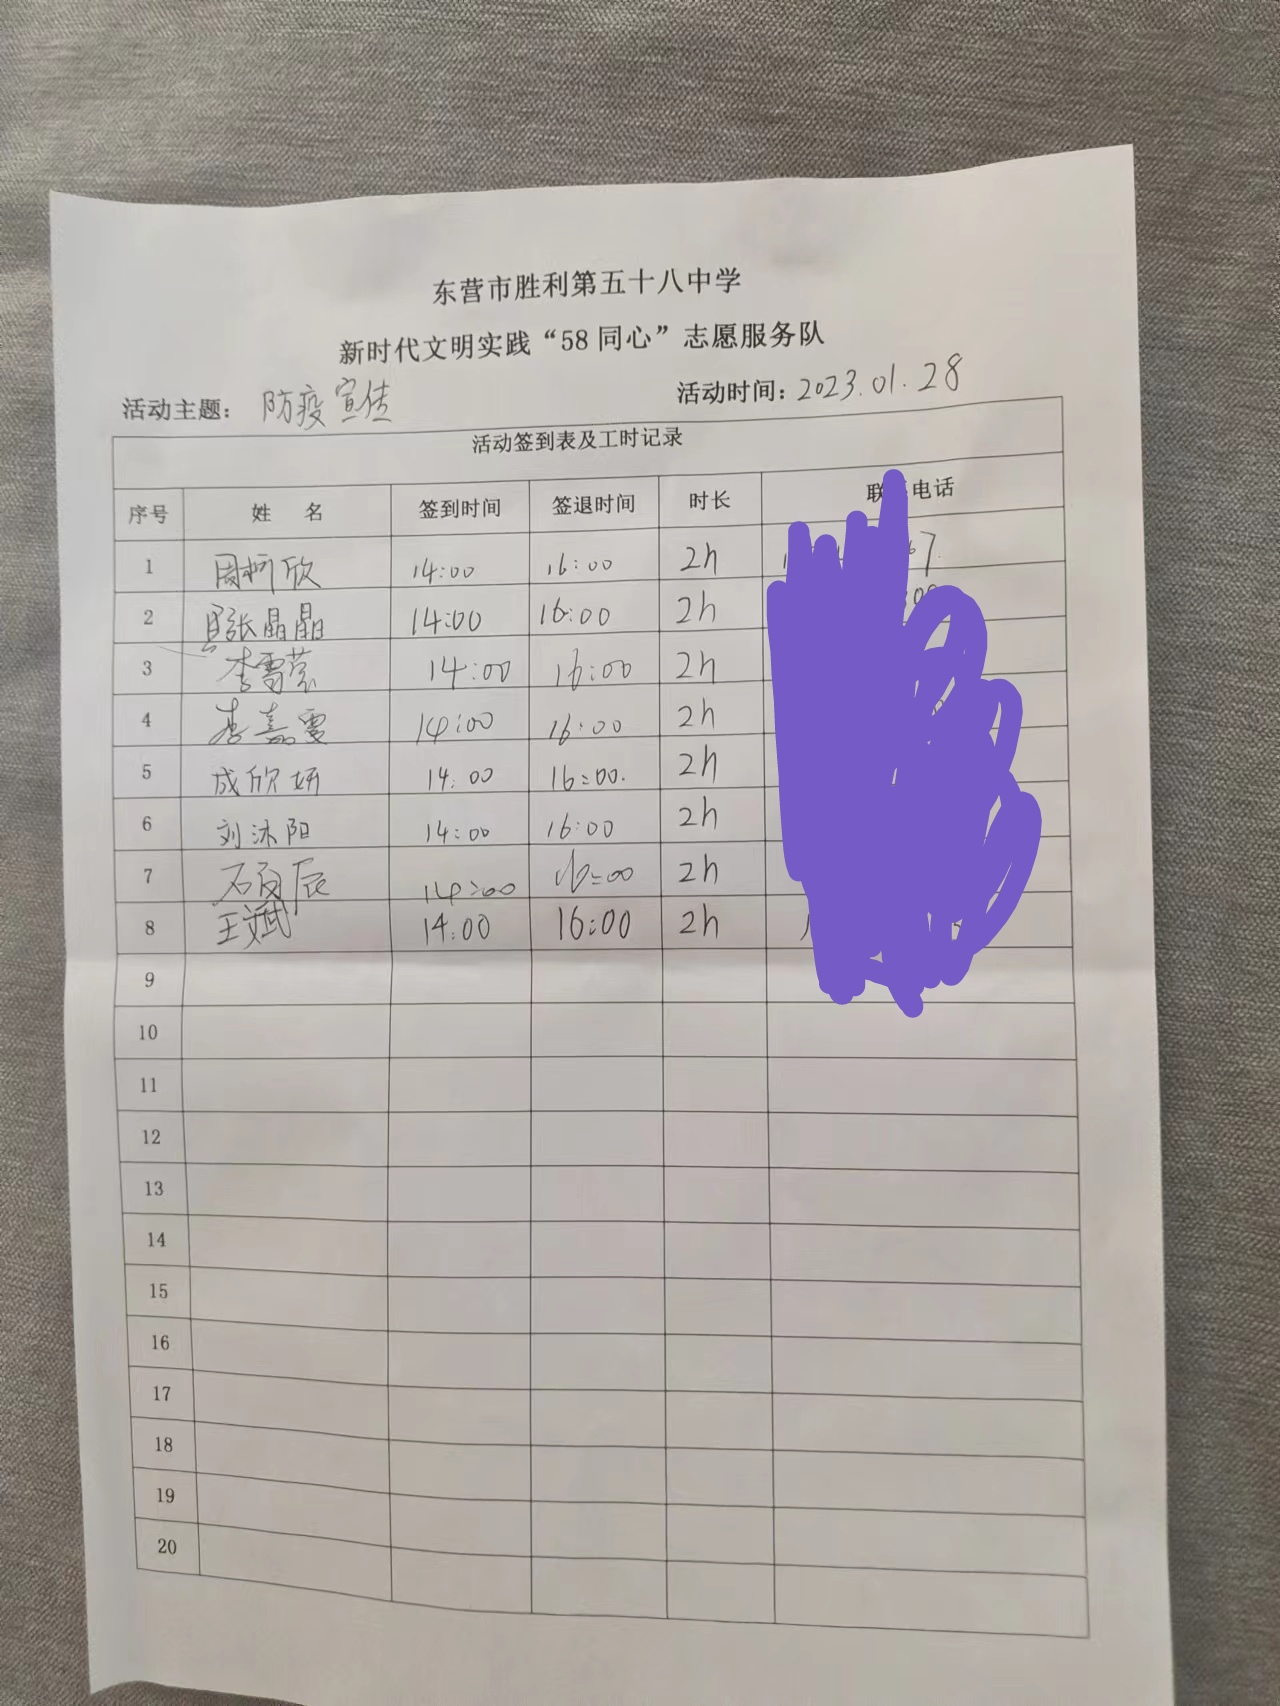 东营市胜利第五十八中学
新时代文明实践“58同心”志愿服务队
活动主题：防疫宣传 活动时间：2023.01.28
活动签到表及工时记录
序号 姓 名 签到时间 签退时间 时长 联 电话
1 周柯欣 14:00 16:00 2h
2 张晶晶 14:00 16:00 2h
3 李雪 14:00 16:00 2h
4 李嘉雯 14:00 16:00 2h
5 成欣妍 14:00 16:00. 2h
6 刘沐阳 14:00 16:00 2h
7 石 辰 14:00 16:00 2h
8 王斌 14:00 16:00 2h
9
10
11
12
13
14
15
16
17
18
19
20